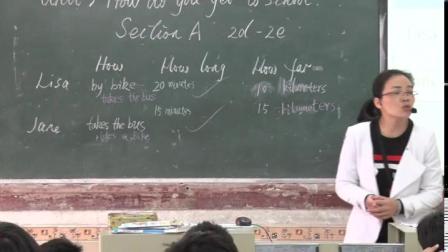 Unit 3 How do you get to school?
Section A 2d-2e
How How long How far
Lisa by bike 20 minutes kilometers
takes the bus
15 minutes 15 kilometers
Jane takes the bus
takes a bike